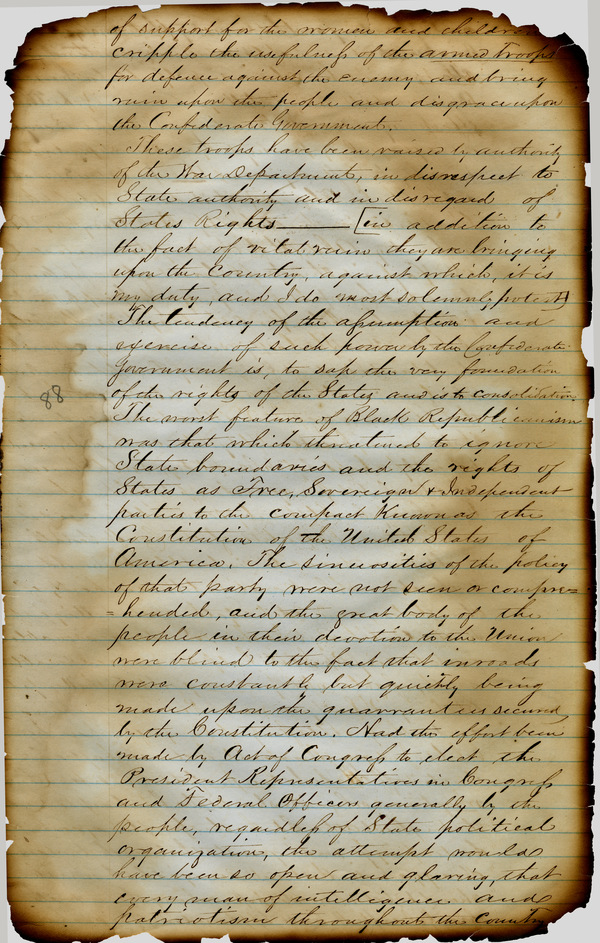 of support for the women and children
cripple the usefulness of the armed troops
for defence against the enemy and bring
ruin upon the people and disgrace upon
the Confederate Government.
These troops have been raised by authority
of the War Department, in disrespect to
State authority and in disregard of
States Rights ——— [in addition to
the fact of vital ruin they are bringing
upon the Country, against which, it is
my duty, and I do most solemnly protest]
The tendency of the assumption and
exercise of such power by the Confederate
Government is, to sap the very foundation
of the rights of the States and is to consolidation.
The worst feature of Black Republicanism
was that which threatened to ignore
State boundaries and the rights of
States as Free, Sovereign & Independent
parties to the compact Known as the
Constitution of the United States of
America. The sinuosities of the policy
of that party were not seen or compre=
=hended, and the great body of the
people in their devotion to the Union
were blind to the fact that inroads
were constantly but quietly being
made upon the guarranties secured
by the Constitution. Had the effort been
made by Act of Congress to elect the
President Representatives in Congress
and Federal Officers generally by the
people, regardless of State political
organization, the attempt would
have been so open and glaring, that
every man of intelligence and
patriotism throughout the country
88